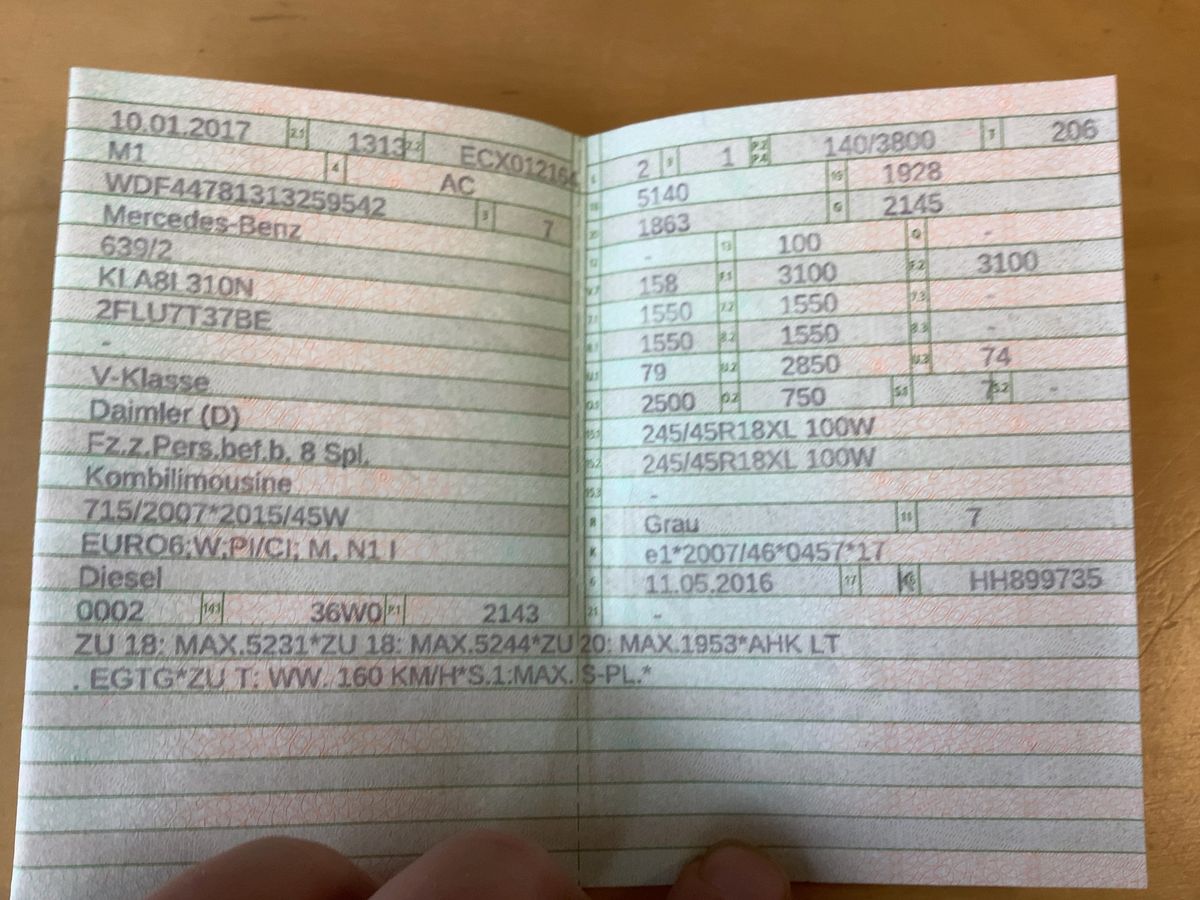 10.01.2017 2.1 1313 2.2 ECX012164
M1 4 AC
WDF44781313259542 3 7
Mercedes-Benz
639/2
KLA8L310N
2FLU7T37BE
-
V-Klasse
Daimler (D)
Fz.z.Pers.bef.b. 8 Spl.
Kombilimousine
715/2007*2015/45W
EURO6;W;PI/CI; M, N1 I
Diesel
0002 14.1 36W0 P.1 2143
L 2 9 1 P.2 P.4 140/3800 T 206
18 5140 19 1928
20 1863 G 2145
12 - 13 100 Q -
V.7 158 F.1 3100 F.2 3100
7.1 1550 7.2 1550 7.3 -
8.1 1550 8.2 1550 8.3 -
U.1 79 U.2 2850 U.3 74
O.1 2500 O.2 750 S.1 7 S.2 -
15.1 245/45R18XL 100W
15.2 245/45R18XL 100W
15.3 -
R Grau 11 7
K e1*2007/46*0457*17
6 11.05.2016 17 K 16 HH899735
21 -
ZU 18: MAX.5231*ZU 18: MAX.5244*ZU 20: MAX.1953*AHK LT
. EGTG*ZU T: WW. 160 KM/H*S.1:MAX. S-PL.*